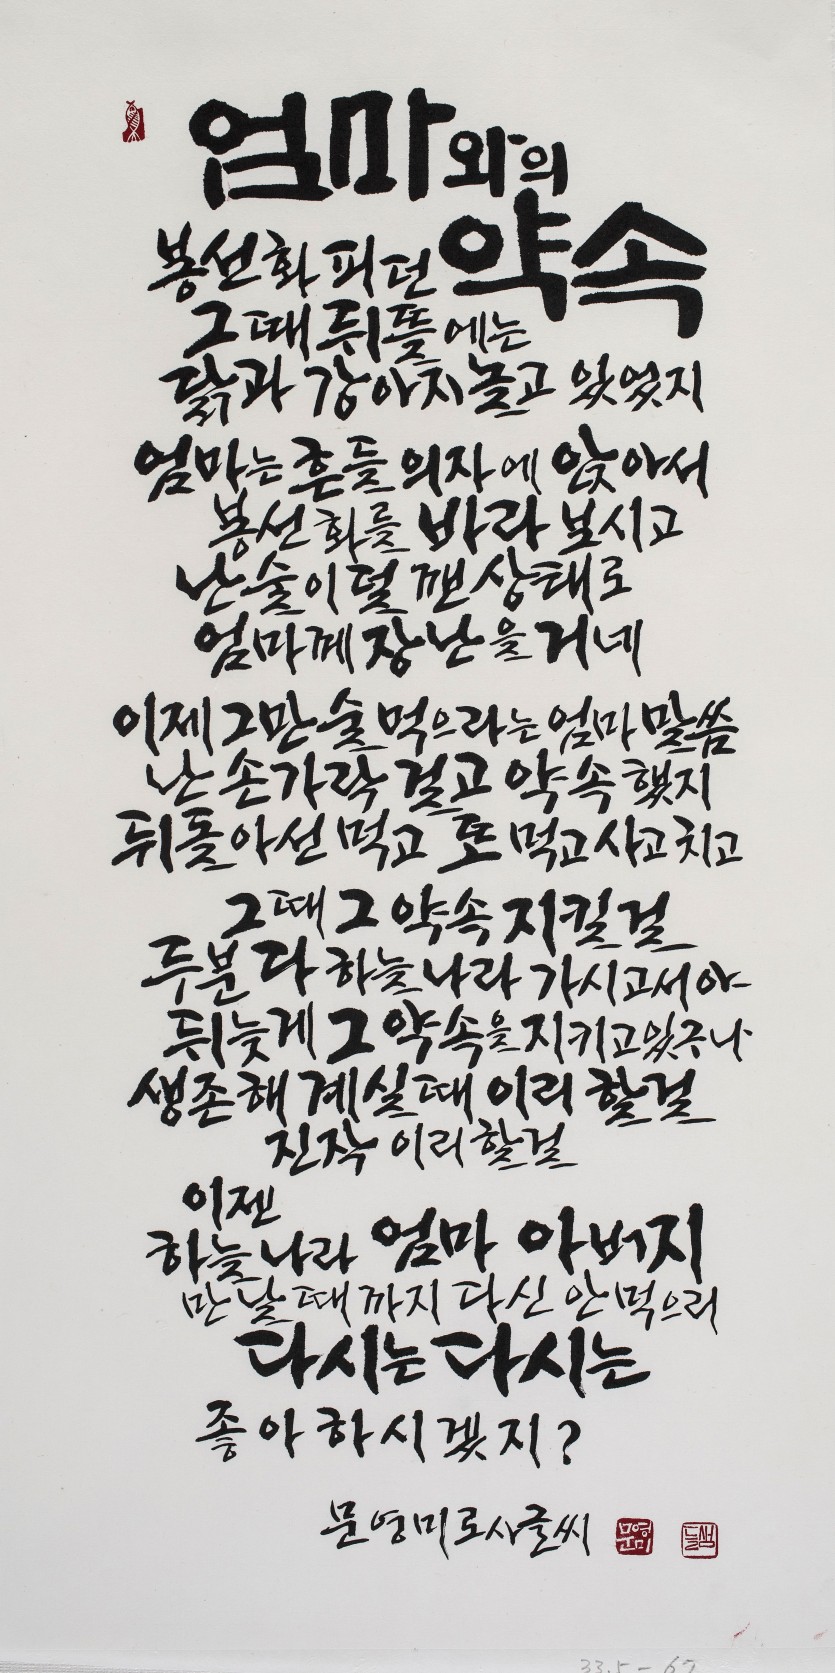 엄마와의
약속
봉선화 피던
그때 뒤뜰에는
닭과 강아지 놀고 있었지
엄마는 흔들의자에 앉아서
봉선화를 바라보시고
난 술이 덜 깬 상태로
엄마께 장난을 거네
이제 그만 술 먹으라는 엄마 말씀
난 손가락 걸고 약속했지
뒤돌아선 먹고 또 먹고 사고치고
그때 그 약속 지킬걸
두분 다 하늘나라 가시고서야
뒤늦게 그 약속을 지키고 있구나
생존해 계실때 이리 할걸
진작 이리 할걸
이젠
하늘나라 엄마 아버지
만날때까지 다신 안 먹으리
다시는 다시는
좋아하시겠지?
문영미로사글씨 문영미 늘샘
33.5 - 67